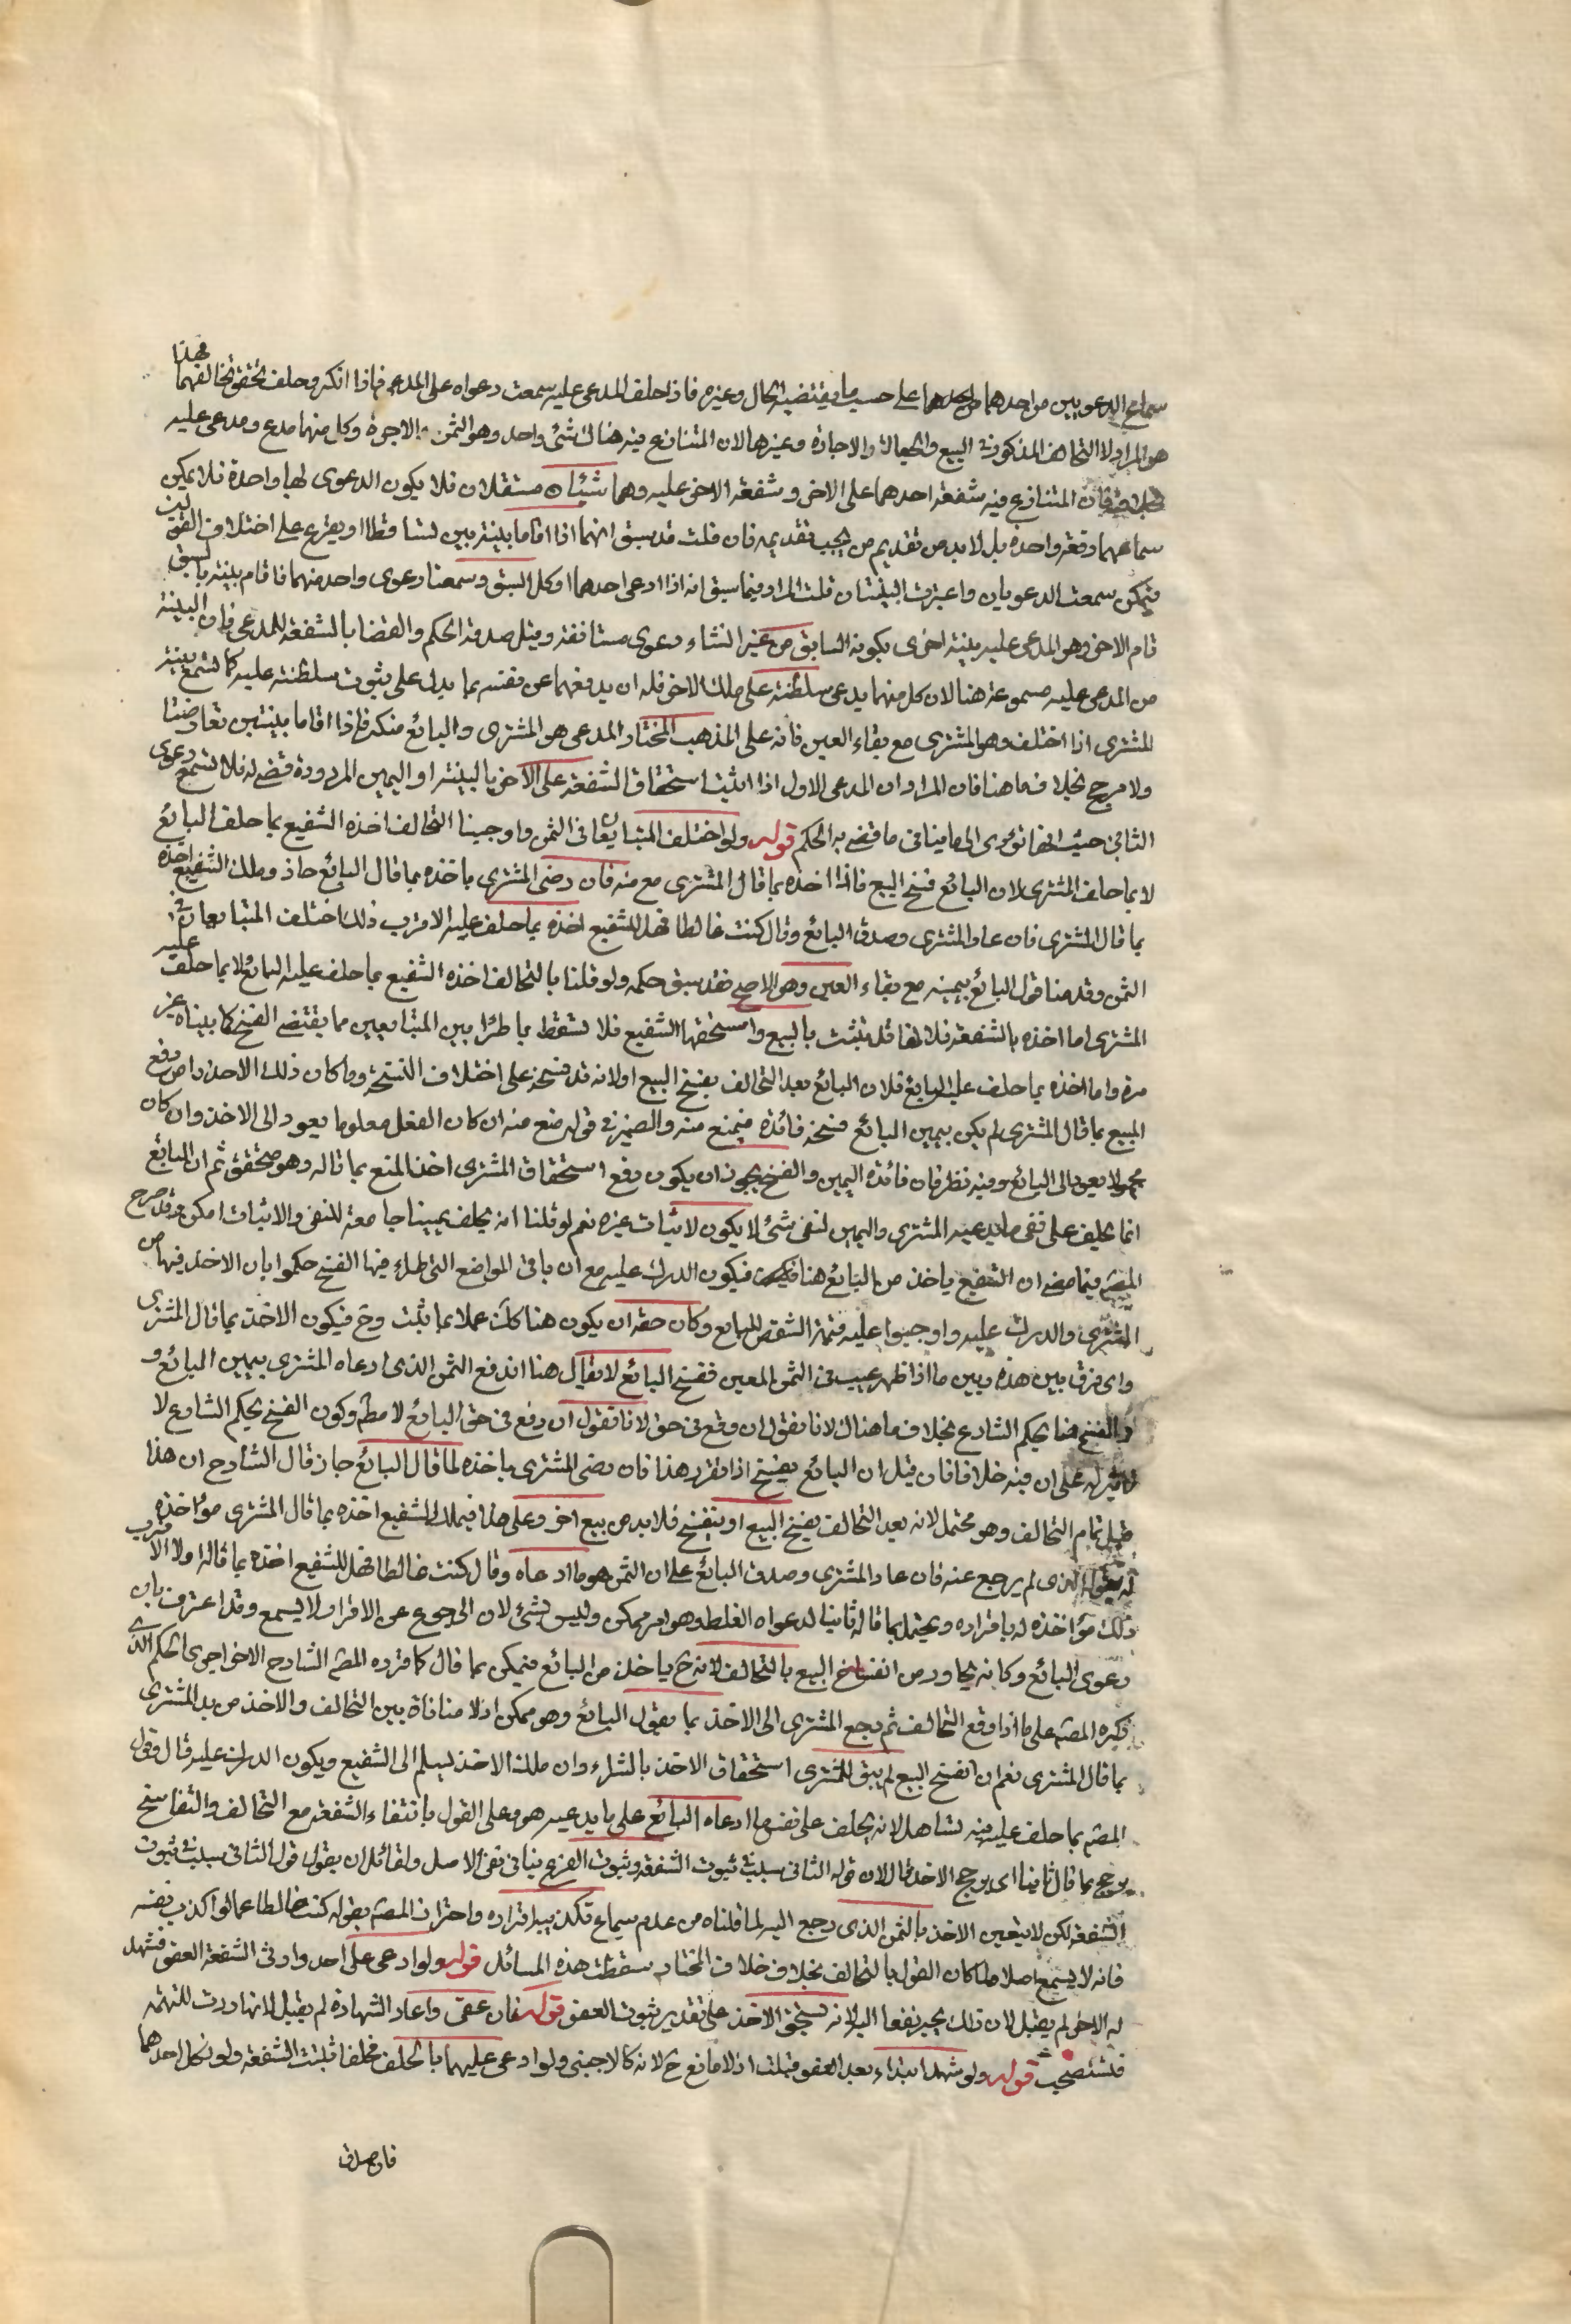 سماع الدعويين من احدهما على حسب ما يقتضيه الحال وغيره فاذا حلف المدعى عليه سمعت دعواه على المدعى فاذا انكر وحلف تحقق تخالفهما فهذا
هو المراد لا التحالف المذكور في البيع والجعالة والاجارة وغيرها لان المتنازع فيه هناك شئ واحد وهو الثمن والاجرة وكل منهما مدع ومدعى عليه
فان المتنازع فيه شفعة احدهما على الاخر وشفعة الاخر عليه وهما شيئان مستقلان فلا يكون الدعوى لها واحدة فلا يمكن
سماعهما دفعة واحدة بل لا بد من تقديم من يجب تقديمه فان قلت قد سبق انهما اذا اقاما بينة بين تساقطا او يقرع على اختلاف القولين
فيمكن سمعت الدعويان واعتبرت البينتان قلت المراد فيما سبق انه اذا ادعى احدهما او كل السبق وسمعنا دعوى واحد منهما فاقام بينة بالسبق
قام الاخر وهو المدعى عليه بينة اخرى بكونه السابق من غير انشاء دعوى مستانفة وقبل صدور الحكم والقضا بالشفعة للمدعى فان البينة
من المدعى عليه مسموعة هنا لان كل منهما يدعى سلطنة على ملك الاخر فله ان يدفعها عن نفسه بما يدل على ثبوت سلطنته عليه كما تسمع بينة
المشترى اذا اختلف وهو المشترى مع بقاء العين فانه على المذهب المختار المدعى هو المشترى والبائع منكر فاذا اقاما بينتين تعارضتا
ولا مرجح بخلاف ما هنا فان المراد ان المدعى الاول اذا اثبت استحقاق الشفعة على الاخر بالبينة او اليمين المردودة قضى له فلا تسمع دعوى
الثانى حيث انها تؤدى الى ما ينافى ما قضى به الحكم قوله ولو اختلف المتبايعان فى الثمن واوجبنا التحالف اخذه الشفيع بما حلف البائع
لا بما حلف المشترى لان البائع فسخ البيع فاذا اخذه بما قال المشترى منع منه فان رضى المشترى باخذه بما قال البائع جاز وملك الشفيع اخذه
بما قال المشترى فان عاد المشترى وصدق البائع وقال كنت غالطا فهل للشفيع اخذه بما حلف عليه الاقرب ذلك اختلف المتبايعان فى
الثمن وقدمنا قول البائع بيمينه مع بقاء العين وهو الاصح فقد سبق حكمه ولو قلنا بالتحالف اخذه الشفيع بما حلف عليه البائع لا بما حلف عليه
المشترى اما اخذه بالشفعة فلانها قد ثبتت بالبيع واستحقها الشفيع فلا تسقط بما طرا بين المتبايعين مما يقتضى الفسخ كما بيناه غير
مرة واما اخذه بما حلف عليه البائع فلان البائع بعد التحالف يفسخ البيع او لانه قد فسخه على اختلاف النسخة وما كان ذلك الاخذ دافع
المبيع بما قال المشترى لم يكن بيمين البائع فسخه فائدة فيمنع منه والضمير فى قوله منع منه ان كان الفعل معلوما يعود الى الاخذ وان كان
مجهولا يعود الى البائع وفيه نظر فان فائدة اليمين والفسخ يجوز ان يكون دفع استحقاق المشترى اخذ المبيع بما قاله وهو متحقق ثم ان البائع
انما يحلف على نفى ما يدعيه المشترى واليمين لنفى شئ لا يكون لاثبات غيره نعم لو قلنا انه يحلف يمينا جامعة للنفى والاثبات امكن وقد صرح
المص فيما مضى ان الشفيع ياخذ من البائع هنا فيكون الدرك عليه مع ان باقى المواضع التى طراء فيها الفسخ حكموا بان الاخذ فيها من
المشترى والدرك عليه واوجبوا عليه قيمة الشقص للبائع وكان حقه ان يكون هنا كذلك عملا بما ثبت وح فيكون الاخذ بما قال المشترى
واى فرق بين هذه وبين ما اذا ظهر عيب فى الثمن المعين ففسخ البائع لا يقال هنا اندفع الثمن الذى ادعاه المشترى بيمين البائع و
الفسخ هنا بحكم الشارع بخلاف ما هناك لانا نقول ان وقع فى حق لانا نقول ان دفع فى حق البائع لا مطم وكون الفسخ بحكم الشارع لا
على ان فيه خلافا فان قيل ان البائع يفسخ اذا تقرر هذا فان رضى المشترى باخذه لما قال البائع جاز قال الشارح ان هذا
قبل تمام التحالف وهو محتمل لانه بعد التحالف يفسخ البيع او ينفسخ فلا بد من بيع اخر وعلى هذا فيملك الشفيع اخذه بما قال المشترى مؤاخذة
له بقوله الذى لم يرجع عنه فان عاد المشترى وصدق البائع على ان الثمن هو ما ادعاه وقال كنت غالطا فهل للشفيع اخذه بما قاله اولا الاقرب
ذلك مؤاخذة له باقراره ويحتمل بما قاله ثانيا لدعواه الغلط وهو امر ممكن وليس بشئ لان الرجوع عن الاقرار لا يسمع وقد اعترف بان
دعوى البائع وكانه يحاور من انفساخ البيع بالتحالف لانه ح ياخذ من البائع فيمكن بما قال كما قرره المص الشارح الاخر اجرى الحكم الذى
ذكره المص على ما اذا وقع التحالف ثم رجع المشترى الى الاخذ بما يقول البائع وهو ممكن اذ لا منافاة بين التحالف والاخذ من يد المشترى
بما قال المشترى نعم ان انفسخ البيع لم يبق للمشترى استحقاق الاخذ بالشراء وان ملك الاخذ ليسلم الى الشفيع ويكون الدرك عليه قال وقول
المص بما حلف عليه فيه تساهل لانه يحلف على نفى ما ادعاه البائع على ما يدعيه هو وعلى القول بانتفاء الشفعة مع التحالف والتفاسخ
يرجع بما قال ثانيا اى يرجح الاخذ قال لان قوله الثانى سبب ثبوت الشفعة وثبوت الفرع ينافى نفى الاصل ولقائل ان يقول قول الثانى سبب ثبوت
الشفعة لكن لا يتعين الاخذ بالثمن الذى رجع اليه لما قلناه من عدم سماع تكذيبه اقراره واحتراز المص بقوله كنت غالطا عما لو اكذب نفسه
فانه لا يسمع اصلا ولما كان القول بالتحالف بخلاف خلاف المختار سقطت هذه المسائل قوله ولو ادعى على احد وارثى الشفعة العفو فشهد
له الاخر لم يقبل لان ذلك يجر نفعا اليه لانه يستحق الاخذ على تقدير ثبوت العفو قوله فان عفى واعاد الشهادة لم يقبل لانها ردت للتهمة
فتستصحب قوله ولو شهد ابتداء بعد العفو قبلت اذ لا مانع ح لانه كالاجنبى ولو ادعى عليهما بالحلف فحلفا ثبتت الشفعة ولو نكل احدهما
فان صدق